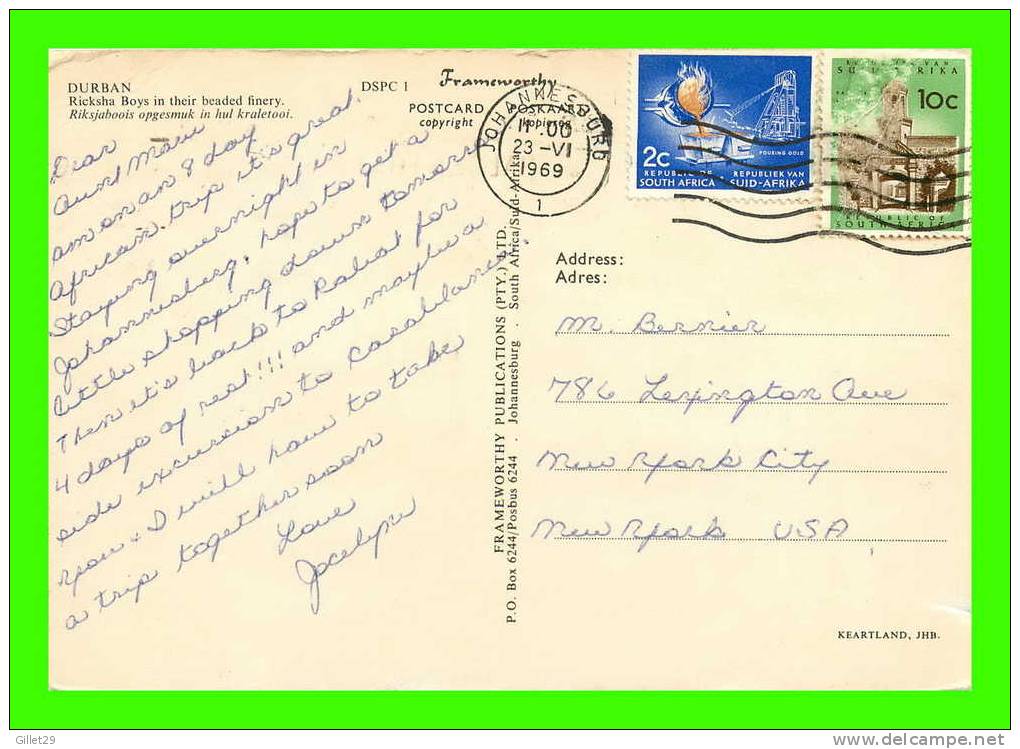 DURBAN
Ricksha Boys in their beaded finery.
Riksjaboois opgesmuk in hul kraletooi.
DSPC 1
Frameworthy
POSTCARD POSKAART
copyright kopiereg
Dear
Aunt Maui
am on an 8 day
African trip it's great.
Staying overnight in
Johannesberg, hope to get a
little shopping down tomorrow
Then it's back to Rabat for
4 days of rest!!! and maybe a
side excursion to Casablanca.
You & I will have to take
a trip together soon
Love
Jocelyn
FRAMEWORTHY PUBLICATIONS (PTY.) LTD.
P.O. Box 6244/Posbus 6244 . Johannesburg . South Africa/Suid-Afrika
JOHANNESBURG
11 00
23 -VI
1969
1
2c
POURING GOLD
REPUBLIC OF REPUBLIEK VAN
SOUTH AFRICA SUID-AFRIKA
REPUBLIEK VAN
SUID-AFRIKA
10c
REPUBLIC OF
SOUTH AFRICA
Address:
Adres:
M. Bernier
786 Lexington Ave
New York City
New York USA
KEARTLAND, JHB.
Gillet29
www.delcampe.net